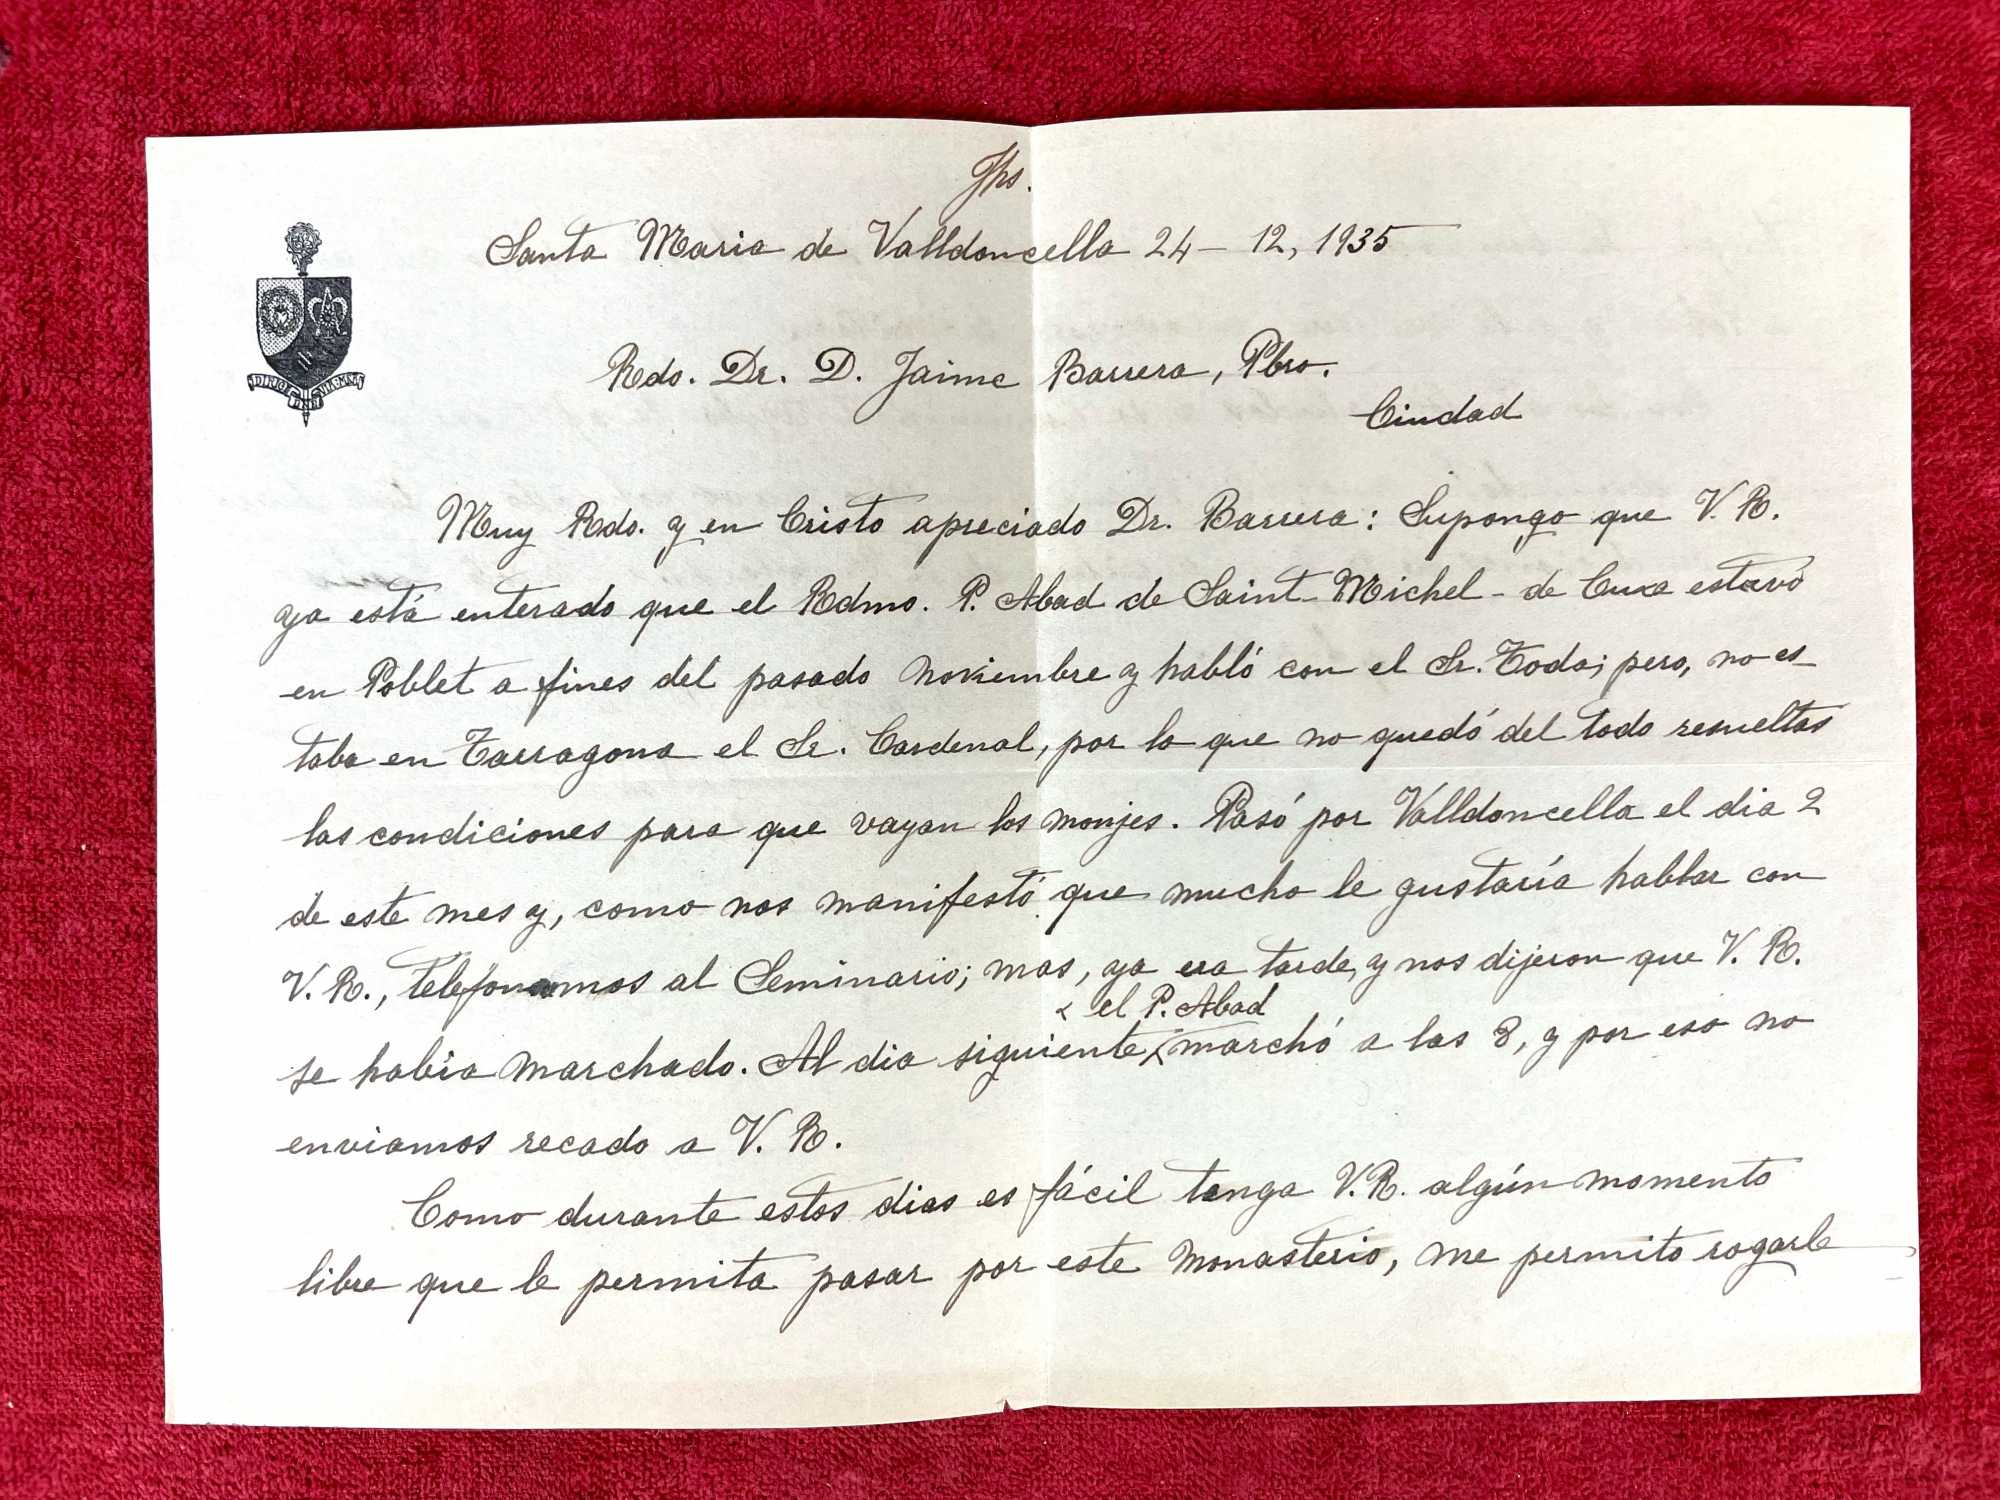 Jhs.
Santa Maria de Valldoncella 24 - 12, 1935
Rdo. Dr. D. Jaime Barrera, Pbro.
Ciudad
Muy Rdo. y en Cristo apreciado Dr. Barrera: Supongo que V. R.
ya está enterado que el Rdmo. P. Abad de Saint-Michel-de Cuxa estuvo
en Poblet a fines del pasado noviembre y habló con el Sr. Toda; pero, no es-
taba en Tarragona el Sr. Cardenal, por lo que no quedó del todo resueltas
las condiciones para que vayan los monjes. Pasó por Valldoncella el dia 2
de este mes y, como nos manifestó que mucho le gustaría hablar con
V. R., telefonamos al Seminario; mas, ya era tarde, y nos dijeron que V. R.
el P. Abad
se había marchado. Al dia siguiente marchó a las 8, y por eso no
enviamos recado a V. R.
Como durante estos dias es fácil tenga V. R. algún momento
libre que le permita pasar por este monasterio, me permito rogarle